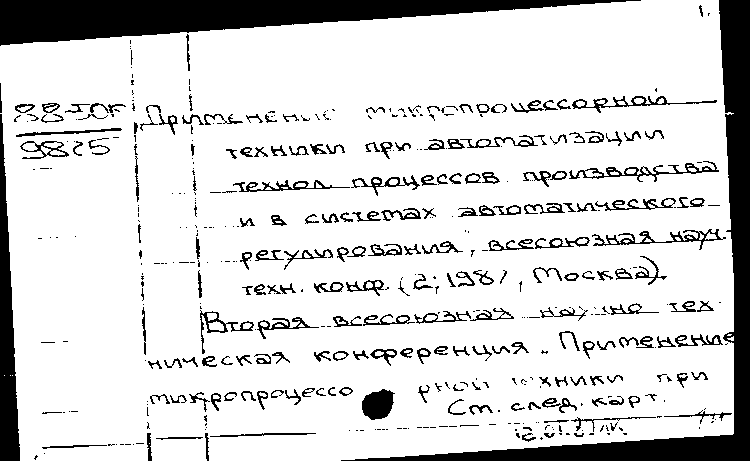 1.
88-ЮК
9825
"Применение микропроцессорной
техники при автоматизации
технол. процессов производства
и в системах автоматического
регулирования", всесоюзная науч.-
техн. конф. (2; 1987, Москва).
Вторая всесоюзная научно тех-
ническая конференция "Применение
микропроцессорной техники при
См. след. карт.